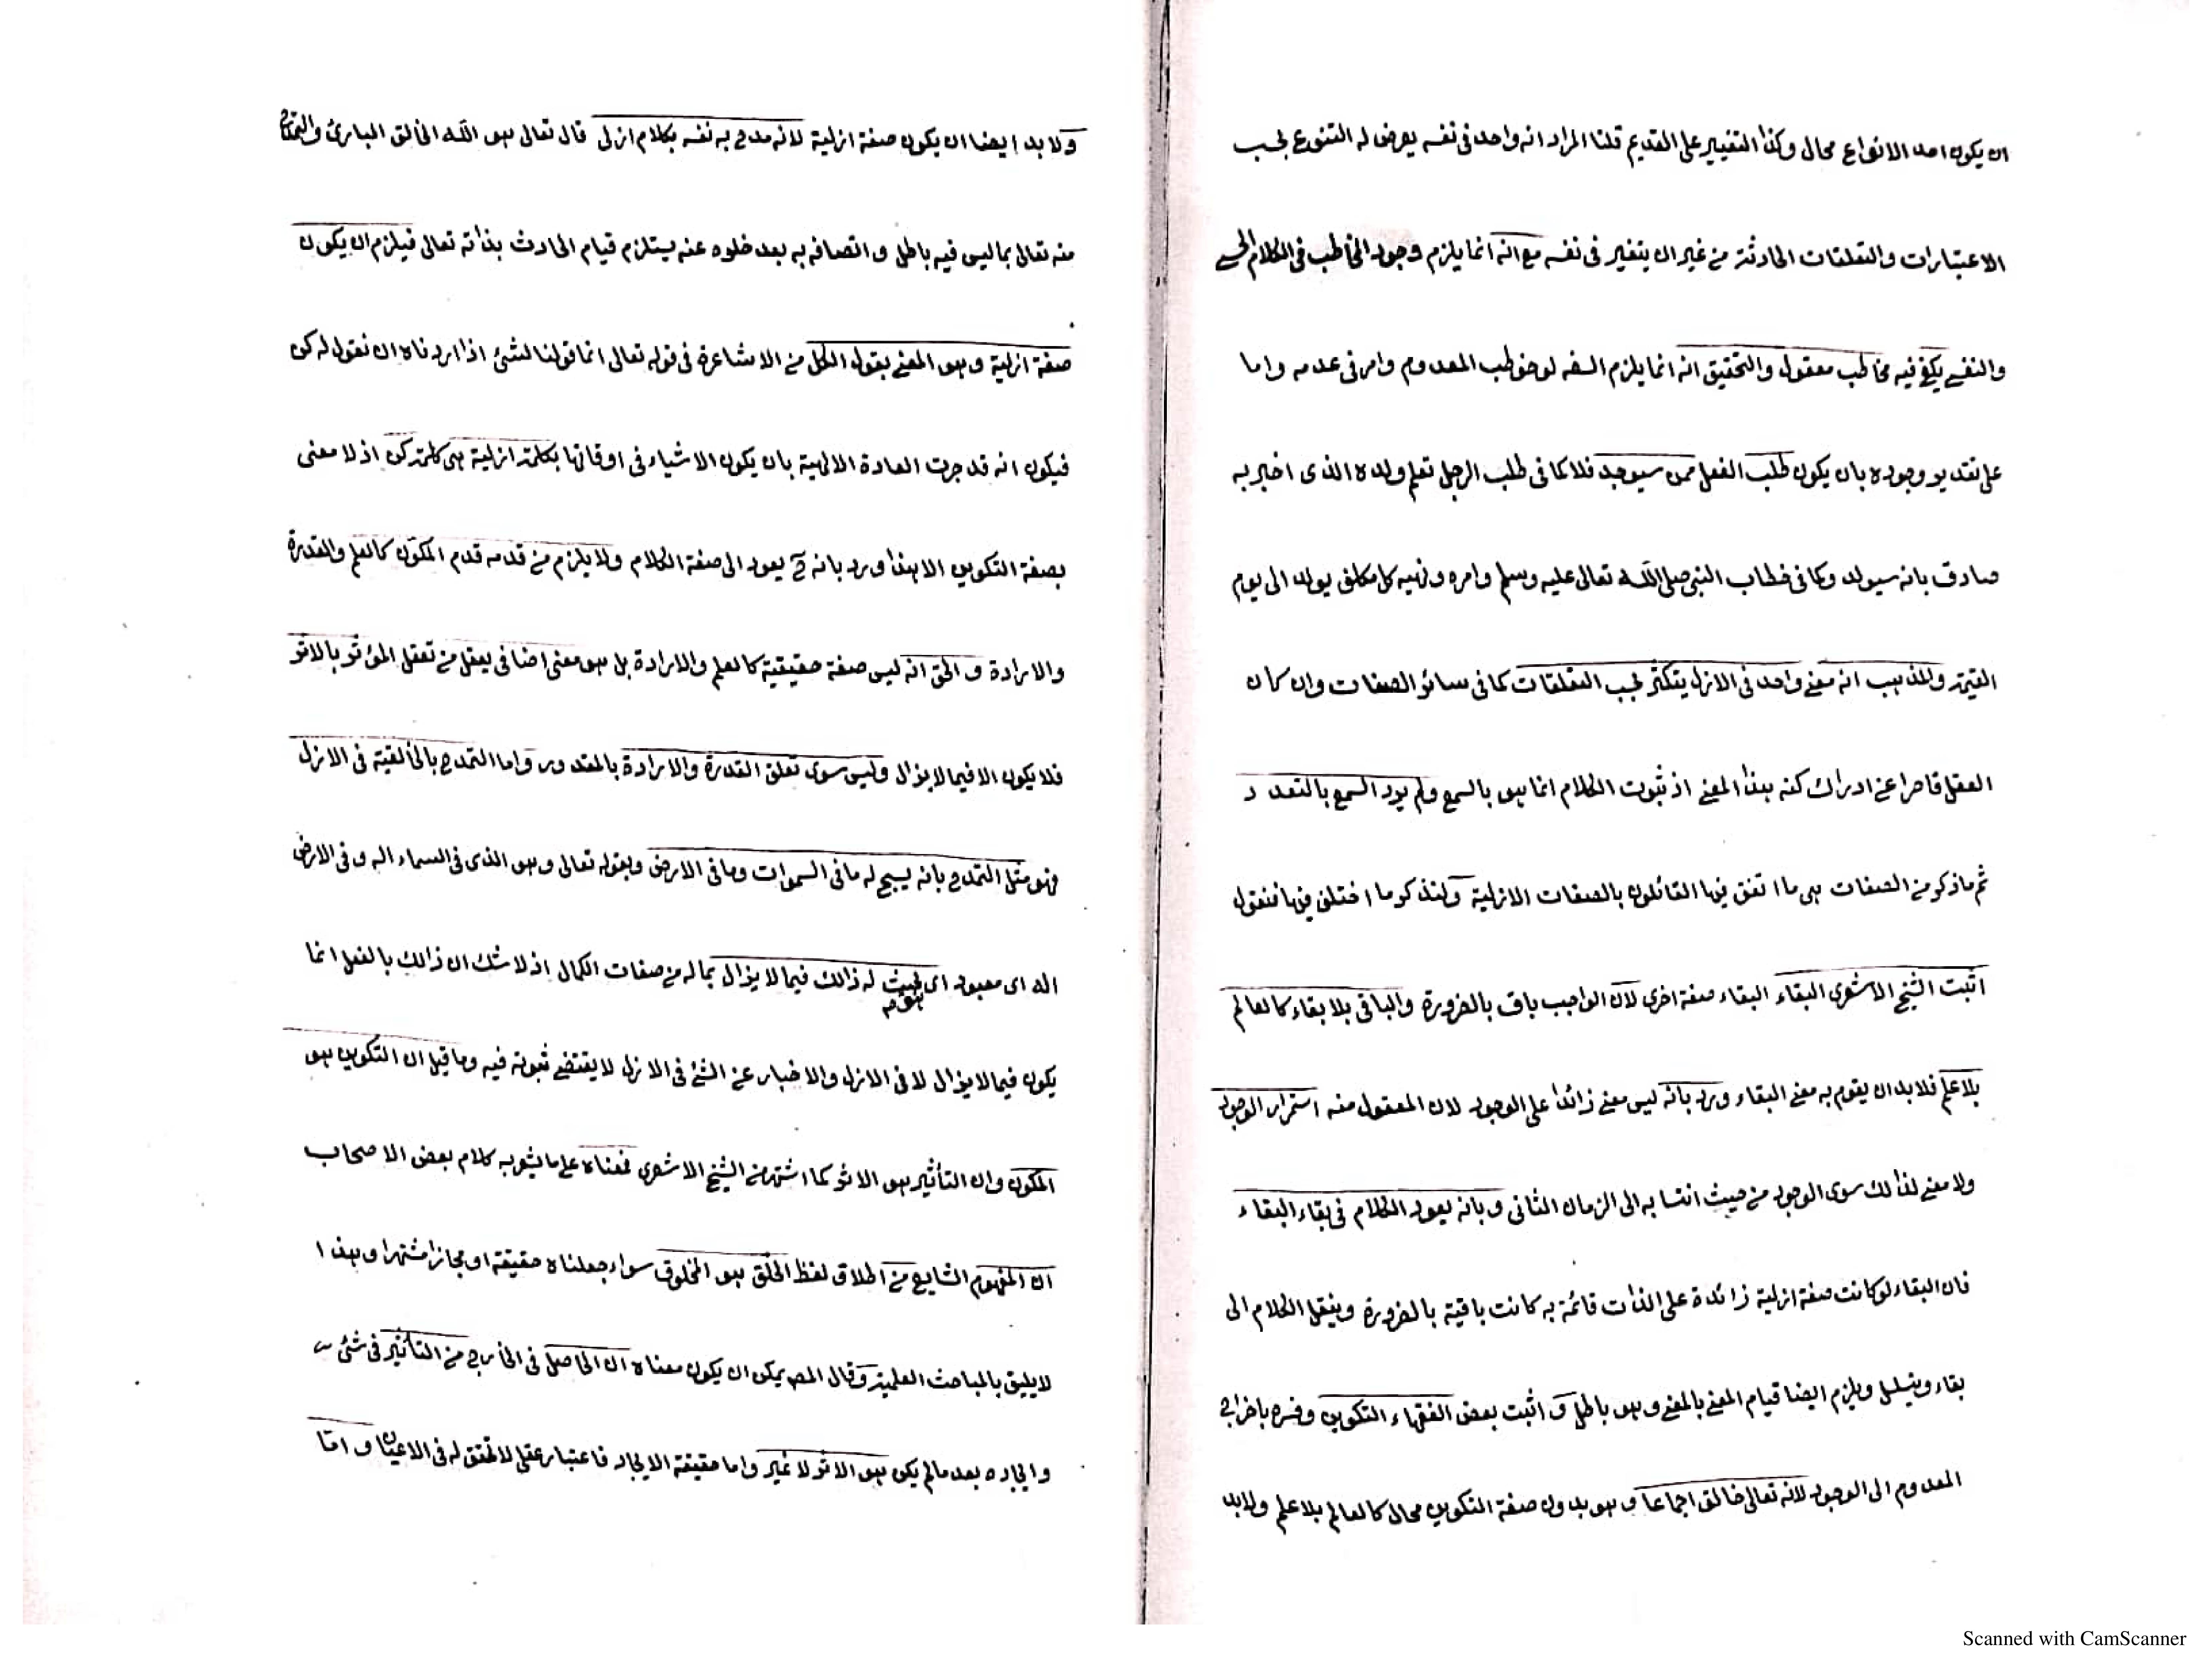 ان يكون احد الانواع محال وكذا التغيير على القديم قلنا المراد انه واحد فى نفسه يعرض له التنوع بحسب
الاعتبارات والتعلقات الحادثة من غير ان يتغير فى نفسه مع انه انما يلزم وجود المخاطب فى الكلام الحسى
والنفسى يكفى فيه مخاطب معقول والتحقيق انه انما يلزم السفه لو خوطب المعدوم وامر فى عدمه واما
على تقدير وجوده بان يكون طلب الفعل ممن سيوجد فلا كما فى طلب الرجل تعلم ولده الذى اخبر به
صادق بانه سيولد وكما فى خطاب النبى صلى الله تعالى عليه وسلم وامره ونهيه كل مكلف يولد الى يوم
القيمة والمذهب انه معنى واحد فى الازل يتكثر بحسب التعلقات كما فى سائر الصفات وان كان
العقل قاصرا عن ادراك كنه هذا المعنى اذ ثبوت الكلام انما هو بالسمع ولم يرد السمع بالتعدد
ثم ما ذكر من الصفات هى ما اتفق فيها القائلون بالصفات الازلية ولنذكر ما اختلف فيها فنقول
اثبت الشيخ الاشعرى البقاء البقاء صفة اخرى لان الواجب باق بالضرورة والباقى بلا بقاء كالعالم
بلا علم فلا بد ان يقوم به معنى البقاء ورد بانه ليس معنى زائدا على الوجود لان المعقول منه استمرار الوجود
ولا معنى لذالك سوى الوجود من حيث انتسابه الى الزمان الثانى وبانه يعود الكلام فى بقاء البقاء
فان البقاء لو كانت صفة ازلية زائدة على الذات قائمة به كانت باقية بالضرورة وينقل الكلام الى
بقاء ويتسلسل ويلزم ايضا قيام المعنى بالمعنى وهو باطل و اثبت بعض الفقهاء التكوين وفسره باخراج
المعدوم الى الوجود لانه تعالى خالق اجماعا وهو بدون صفة التكوين محال كالعالم بلا علم ولابد
ولا بد ايضا ان يكون صفة ازلية لانه مدح به نفسه بكلام ازلى قال تعالى هو الله الخالق البارئ والتمدح
منه تعالى بما ليس فيه باطل و اتصافه به بعد خلوه عنه يستلزم قيام الحادث بذاته تعالى فيلزم ان يكون
صفة ازلية وهو المعنى بقول الكل من الاشاعرة فى قوله تعالى انما قولنا لشئ اذا اردناه ان نقول له كن
فيكون انه قد جرت العادة الالهية بان يكون الاشياء فى اوقاتها بكلمة ازلية هى كلمة كن اذ لا معنى
بصفة التكوين الا هذا ورد بانه ح يعود الى صفة الكلام ولا يلزم من قدمه قدم المكوّن كالعلم والقدرة
والارادة و الحق انه ليس صفة حقيقية كالعلم والارادة بل هو معنى اضافى يعقل من تعقل المؤثر بالاثر
فلا يكون الا فيما لا يزال وليس سوى تعلق القدرة والارادة بالمقدور واما التمدح بالخالقية فى الازل
فهو مثل التمدح بانه يسبح له ما فى السموات وما فى الارض وبقوله تعالى وهو الذى فى السماء اله وفى الارض
اله اى معبود اى بحيث له ذالك فيما لا يزال بما له من صفات الكمال اذ لا شك ان ذالك بالفعل انما
يكون فيما لا يزال لا فى الازل والاخبار عن الشئ فى الازل لا يقتضى ثبوته فيه وما قيل ان التكوين هو
المكون وان التأثير هو الاثر كما اشتهر من الشيخ الاشعرى فمعناه على ما يشعر به كلام بعض الاصحاب
ان المفهوم الشايع من اطلاق لفظ الخلق هو المخلوق سواء جعلناه حقيقة او مجازا مشتهرا وهذا
لا يليق بالمباحث العلمية وقال المص يمكن ان يكون معناه ان الحاصل فى الخارج من التأثير فى شئ
وايجاده بعد ما لم يكن هو الاثر لا غير واما حقيقة الايجاد فاعتبار عقلى لا تحقق له فى الاعيان و امّا
Scanned with CamScanner